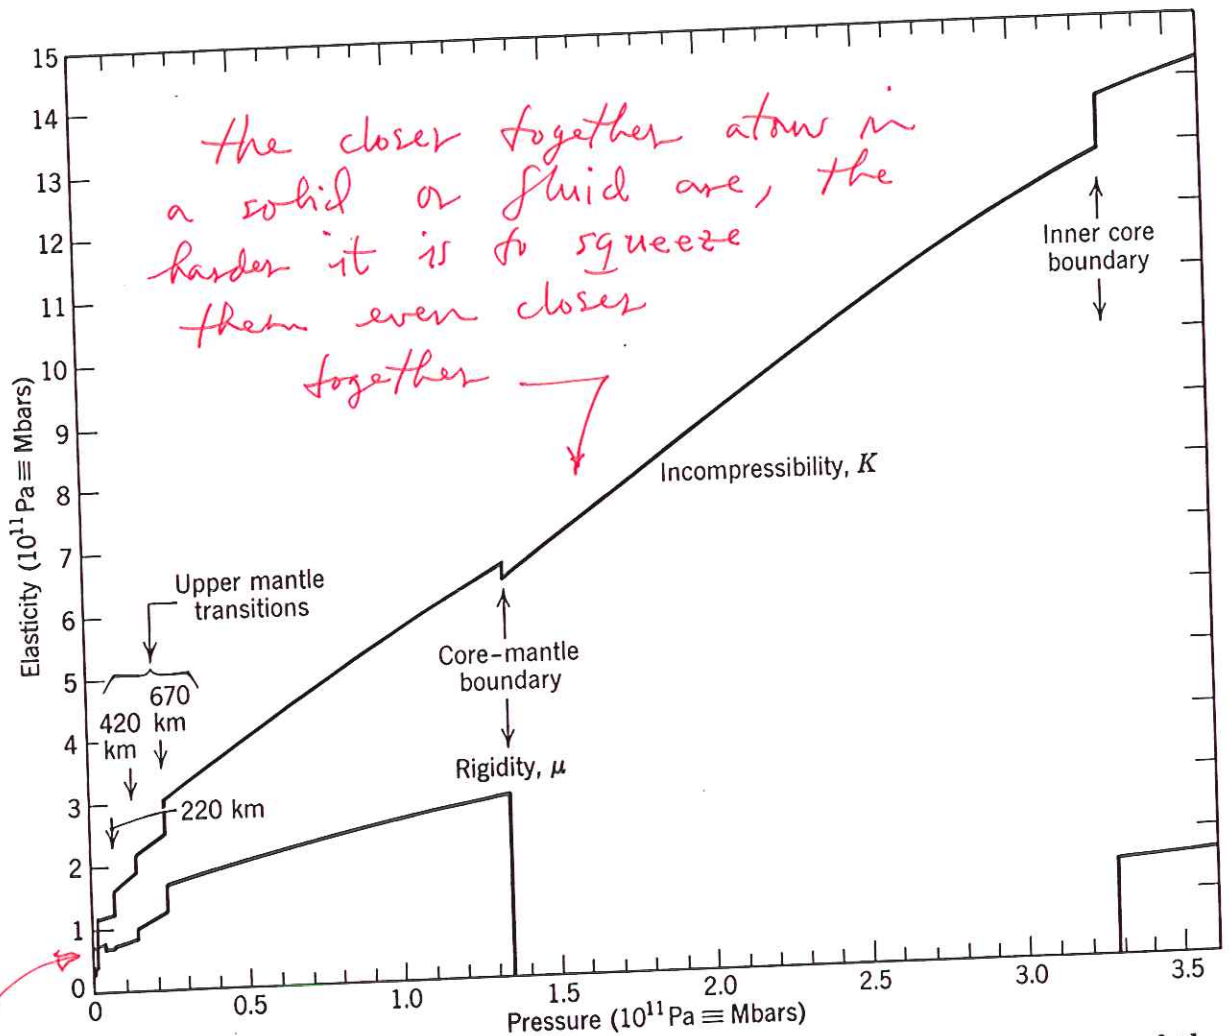 15
14
13
12
11
10
9
8
7
6
5
4
3
2
1
0
Elasticity (10^11 Pa ≡ Mbars)
the closer together atoms in
a solid or fluid are, the
harder it is to squeeze
them even closer
together
Inner core
boundary
Incompressibility, K
Upper mantle
transitions
670
km
420
km
220 km
Core–mantle
boundary
Rigidity, μ
0 0.5 1.0 1.5 2.0 2.5 3.0 3.5
Pressure (10^11 Pa ≡ Mbars)